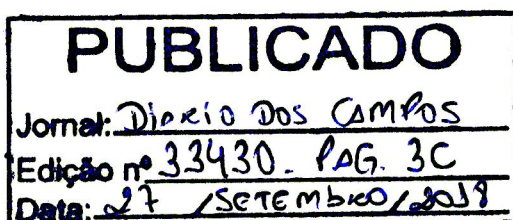 PUBLICADO
Jornal: Diário Dos CAMPOS
Edição nº 33430. PAG. 3C
Data: 27 / SETEMBRO / 2018